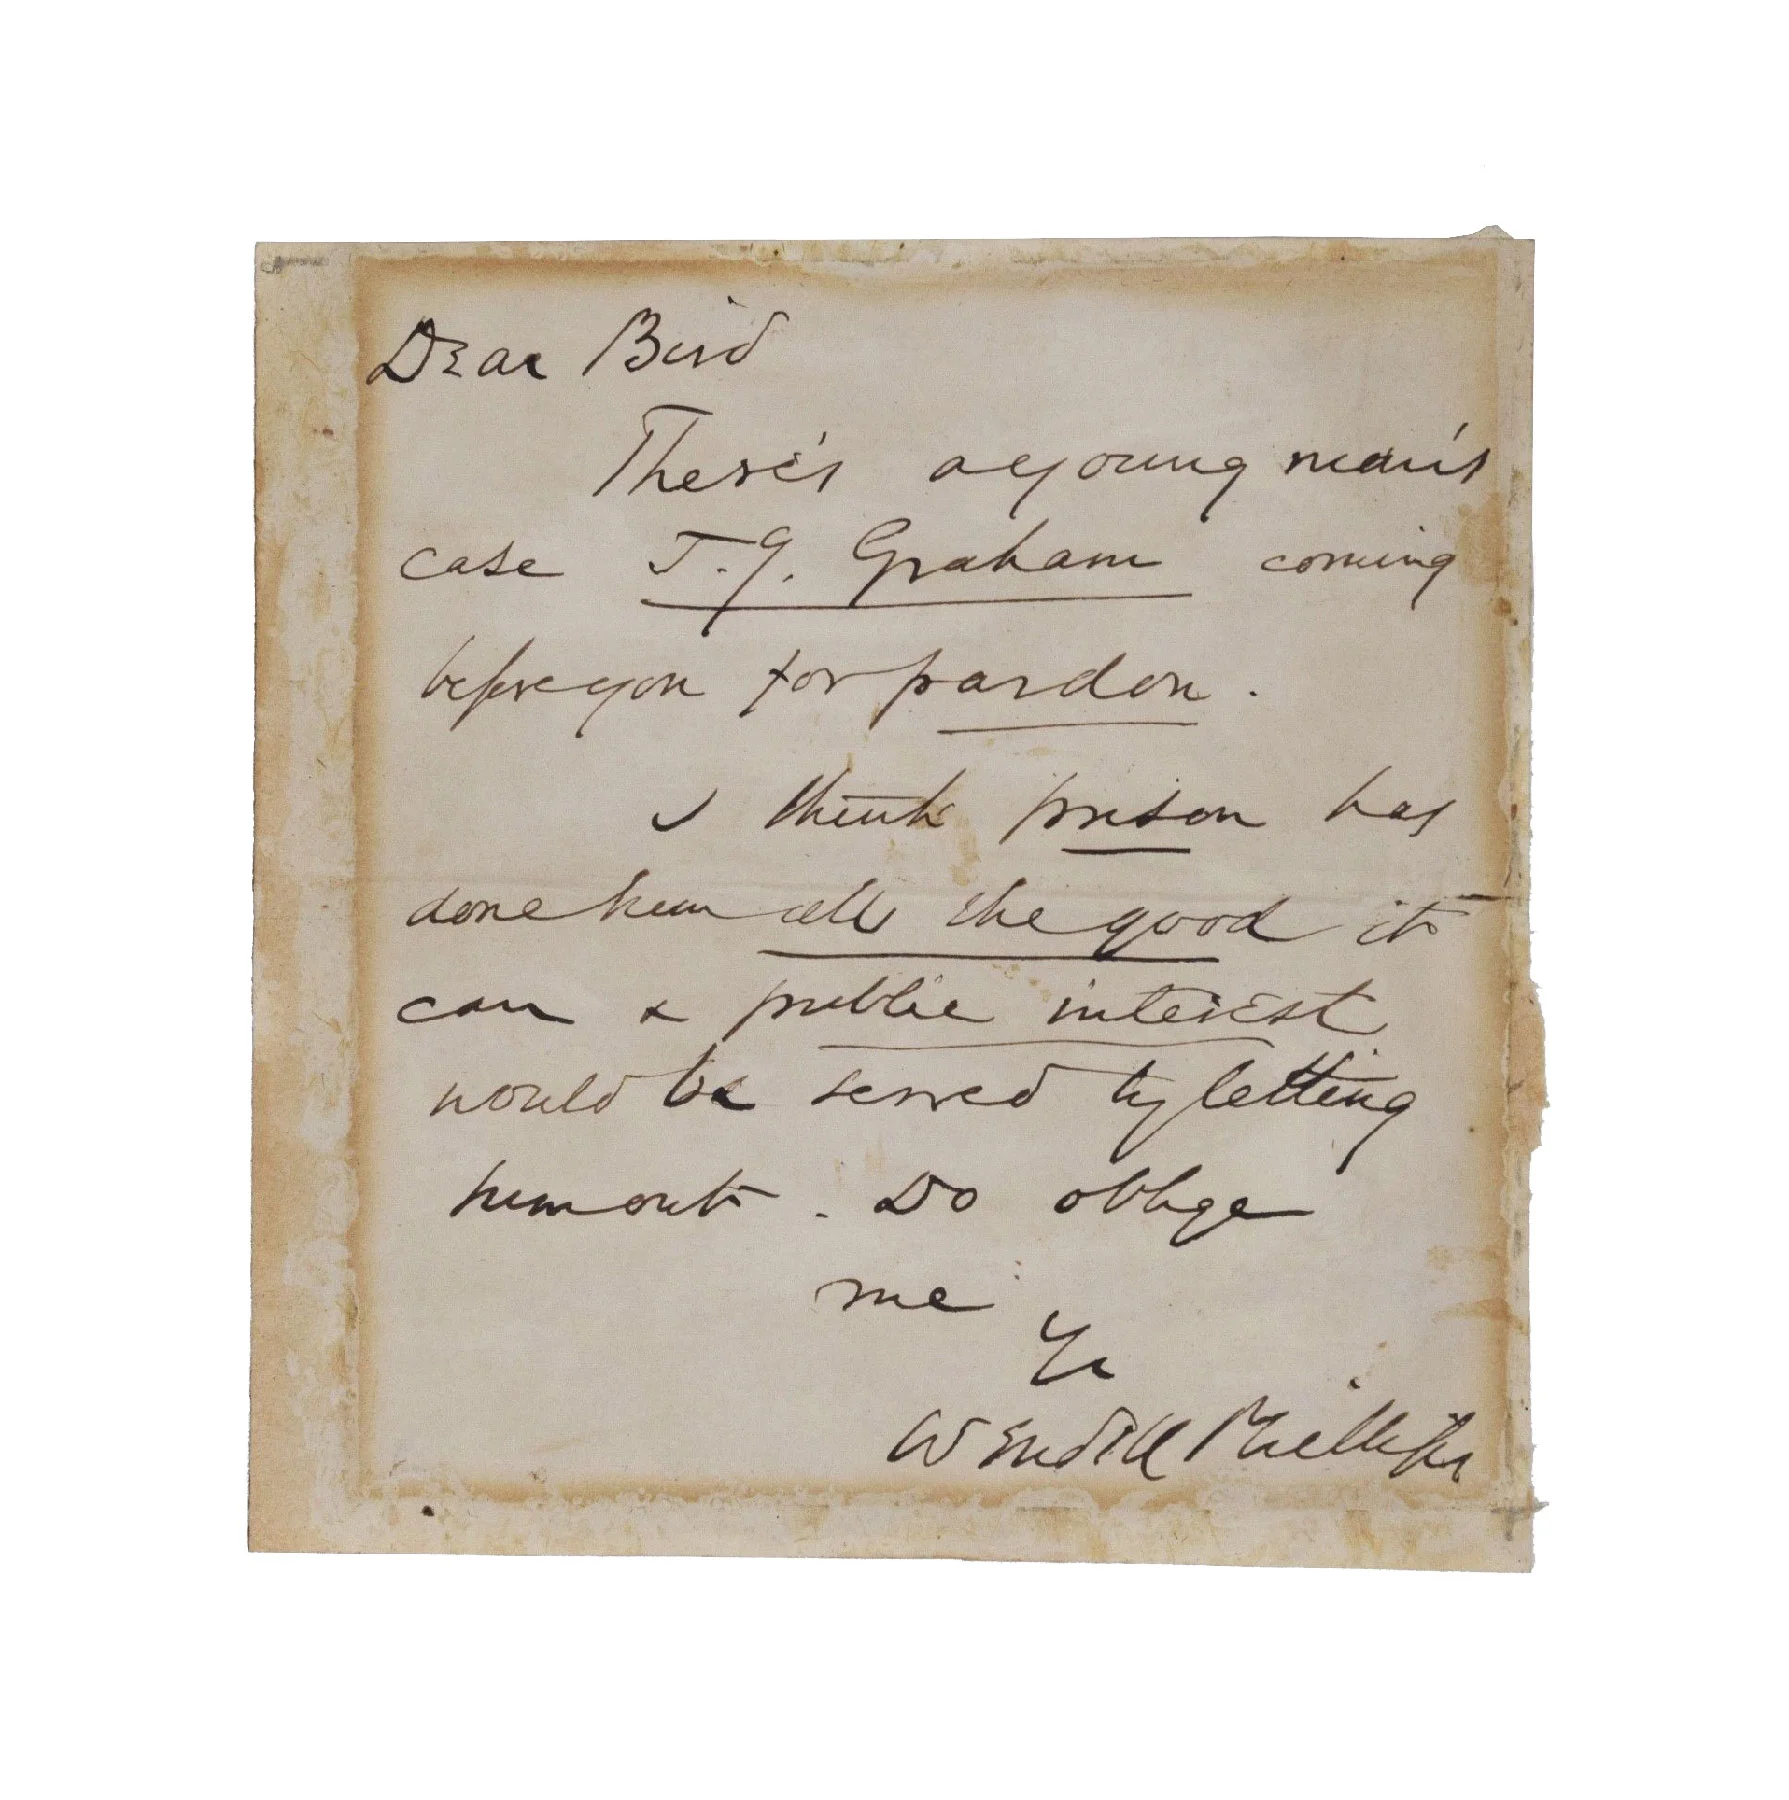 Dear Bird
There's a young man's
case J. G. Graham coming
before you for pardon.
I think prison has
done him all the good it
can & public interest
would be served by letting
him out. Do oblige
me
Yr
Wendell Phillips